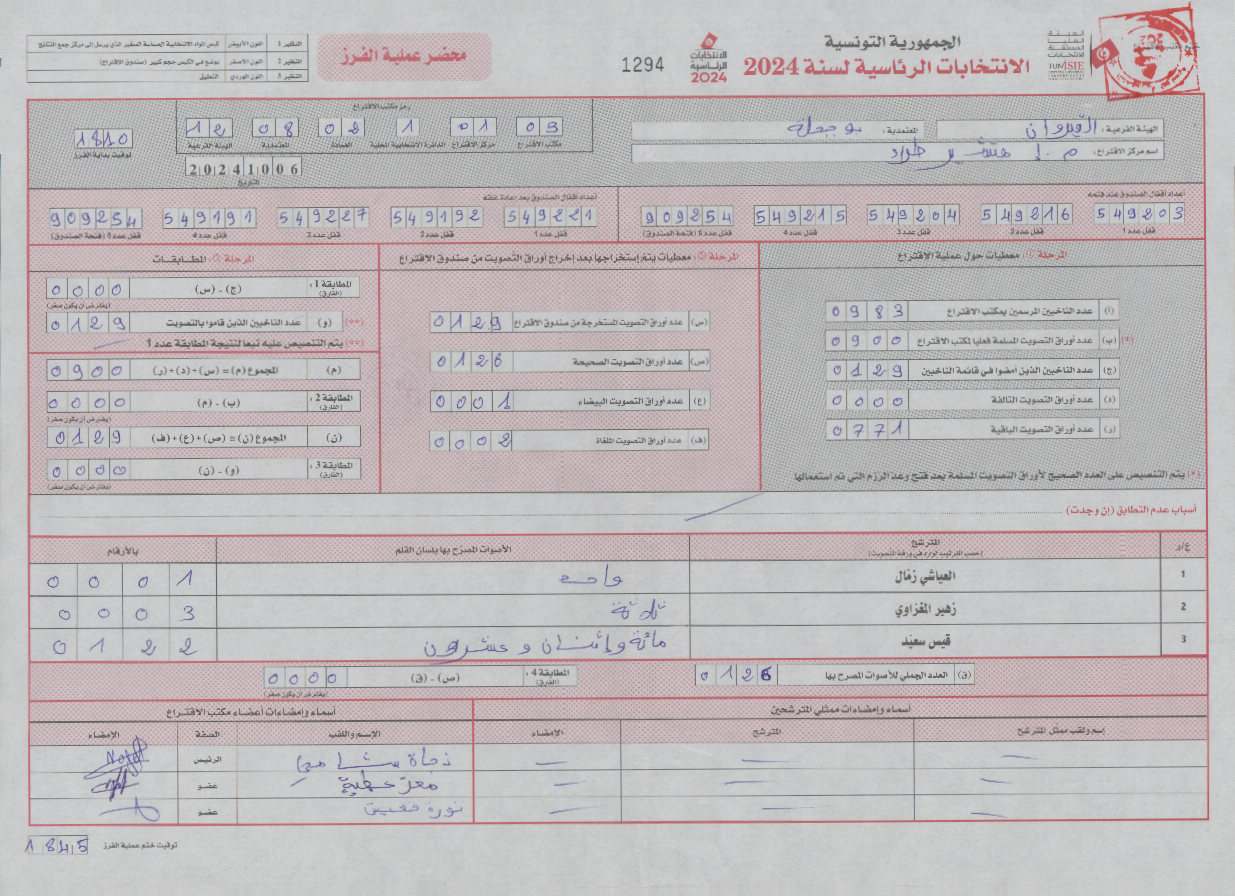 الجمهورية التونسية
الانتخابات الرئاسية لسنة 2024
الهيئة العليا المستقلة للانتخابات
TUNISIE
الانتخابات الرئاسية 2024
1294
محضر عملية الفرز
النظير 1 اللون الأبيض
النظير 2 اللون الأصفر
النظير 3 اللون الوردي التعليق
الهيئة الفرعية : القيروان
المعتمدية : بوحجلة
اسم مركز الاقتراع : م . إ هنشير
رمز مكتب الاقتراع
03 01 1 02 08 12
مكتب الاقتراع مركز الاقتراع الدائرة الانتخابية المحلية العمادة المعتمدية الهيئة الفرعية
20241006
التاريخ
1810
توقيت بداية الفرز
أعداد أقفال الصندوق عند فتحه
549203 549216 549204 549215 909254
قفل عدد 1 قفل عدد 2 قفل عدد 3 قفل عدد 4 قفل عدد 5 (فتحة الصندوق)
أعداد أقفال الصندوق بعد إعادة غلقه
549221 549192 549227 549191 909254
قفل عدد 1 قفل عدد 2 قفل عدد 3 قفل عدد 4 قفل عدد 5 (فتحة الصندوق)
معطيات حول عملية الاقتراع
(أ) عدد الناخبين المرسمين بمكتب الاقتراع 0983
(*) (ب) عدد أوراق التصويت المسلمة فعليا لمكتب الاقتراع 0900
(ج) عدد الناخبين الذين أمضوا في قائمة الناخبين 0129
(د) عدد أوراق التصويت التالفة 0000
(ر) عدد أوراق التصويت الباقية 0771
(*) يتم التنصيص على العدد الصحيح لأوراق التصويت المسلمة بعد فتح وعد الرزم التي تم استعمالها
معطيات يتم إستخراجها بعد إخراج أوراق التصويت من صندوق الاقتراع
(س) عدد أوراق التصويت المستخرجة من صندوق الاقتراع 0129
(ص) عدد أوراق التصويت الصحيحة 0126
(ع) عدد أوراق التصويت البيضاء 0001
(ف) عدد أوراق التصويت الملغاة 0002
المطابقات
المطابقة 1 : (الفارق) (ج) - (س) 0000
(يفترض أن يكون صفر)
(**) (و) عدد الناخبين الذين قاموا بالتصويت 0129
(**) يتم التنصيص عليه تبعا لنتيجة المطابقة عدد 1
(م) المجموع (م) = (س) + (د) + (ر) 0900
المطابقة 2 : (الفارق) (ب) - (م) 0000
(يفترض أن يكون صفر)
(ن) المجموع (ن) = (ص) + (ع) + (ف) 0129
المطابقة 3 : (الفارق) (و) - (ن) 0000
(يفترض أن يكون صفر)
أسباب عدم التطابق (إن وجدت)
ع/ر المترشح الأصوات المصرح بها بلسان القلم بالأرقام
(حسب الترتيب الوارد في ورقة التصويت)
1 العياشي زمّال واحد 0001
2 زهير المغزاوي ثلاثة 0003
3 قيس سعيّد مائة وإثنان وعشرون 0122
(ق) العدد الجملي للأصوات المصرح بها 0126
المطابقة 4 : (الفارق) (ص) - (ق) 0000
(يفترض أن يكون صفر)
أسماء وإمضاءات ممثلي المترشحين
إسم ولقب ممثل المترشح المترشح الإمضاء
أسماء وإمضاءات أعضاء مكتب الاقتراع
الإسم واللقب الصفة الإمضاء
نجاة الرئيس
معز عطية عضو
نورة عضو
توقيت ختم عملية الفرز 1845